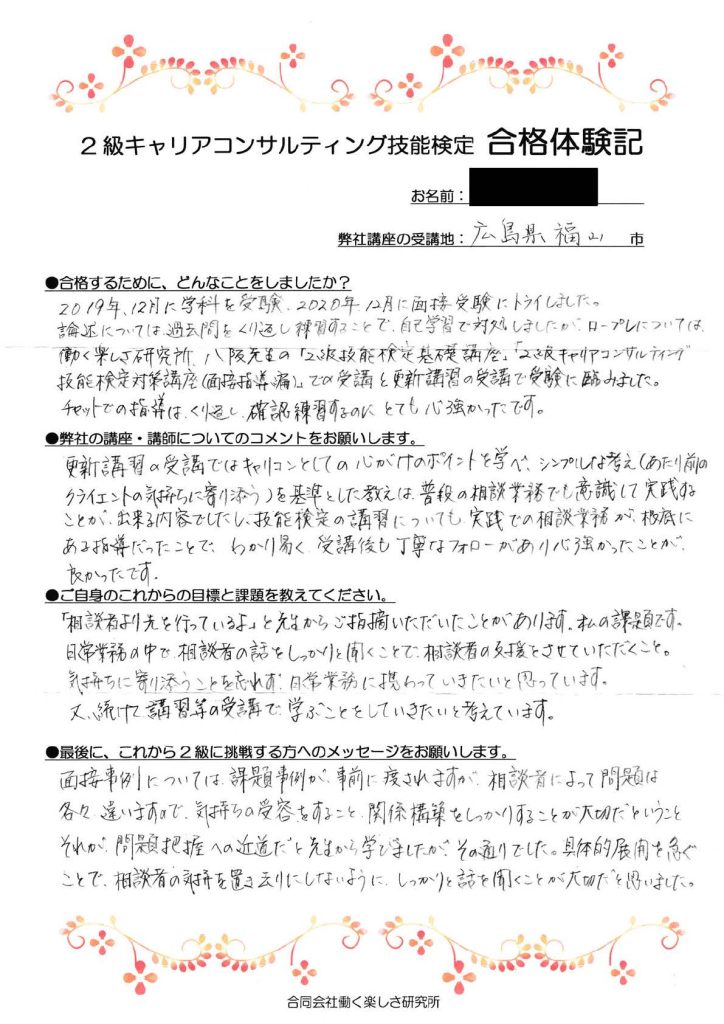 2級キャリアコンサルティング技能検定 合格体験記
お名前：
弊社講座の受講地： 広島県福山 市
●合格するために、どんなことをしましたか？
2019年、12月に学科を受験、2020年12月に面接受験にトライしました。
論述については、過去問をくり返し練習することで、自己学習で対処しましたが、ロープレについては、
働く楽しさ研究所、八阪先生の「2級技能検定基礎講座」「2級キャリアコンサルティング
技能検定対策講座(面接指導編)」での受講と更新講習の受講で受験に臨みました。
チャットでの指導は、くり返し、確認練習するのにとても心強かったです。
●弊社の講座・講師についてのコメントをお願いします。
更新講習の受講ではキャリコンとしての心がけのポイントを学べ、シンプルな考え(あたり前の
クライエントの気持ちに寄り添う)を基準とした教えは、普段の相談業務でも意識して実践する
ことが、出来る内容でしたし、技能検定の講習についても、実践での相談業務が、根底に
ある指導だったことで、わかり易く、受講後も丁寧なフォローがあり心強かったことが、
良かったです。
●ご自身のこれからの目標と課題を教えてください。
「相談者より先を行っているよ」と先生からご指摘いただいたことがあります。私の課題です。
日常業務の中で、相談者の話をしっかりと聞くことで、相談者の支援をさせていただくこと。
気持ちに寄り添うことを忘れず、日常業務に携わっていきたいと思っています。
又、続けて講習等の受講で、学ぶことをしていきたいと考えています。
●最後に、これから2級に挑戦する方へのメッセージをお願いします。
面接事例については、課題事例が、事前に渡されますが、相談者によって問題は
各々、違いますので、気持ちの受容をすること、関係構築をしっかりすることが大切だということ
それが、問題把握への近道だと先生から学びましたが、その通りでした。具体的展開を急ぐ
ことで、相談者の気持を置き去りにしないように、しっかりと話を聞くことが大切だと思いました。
合同会社働く楽しさ研究所